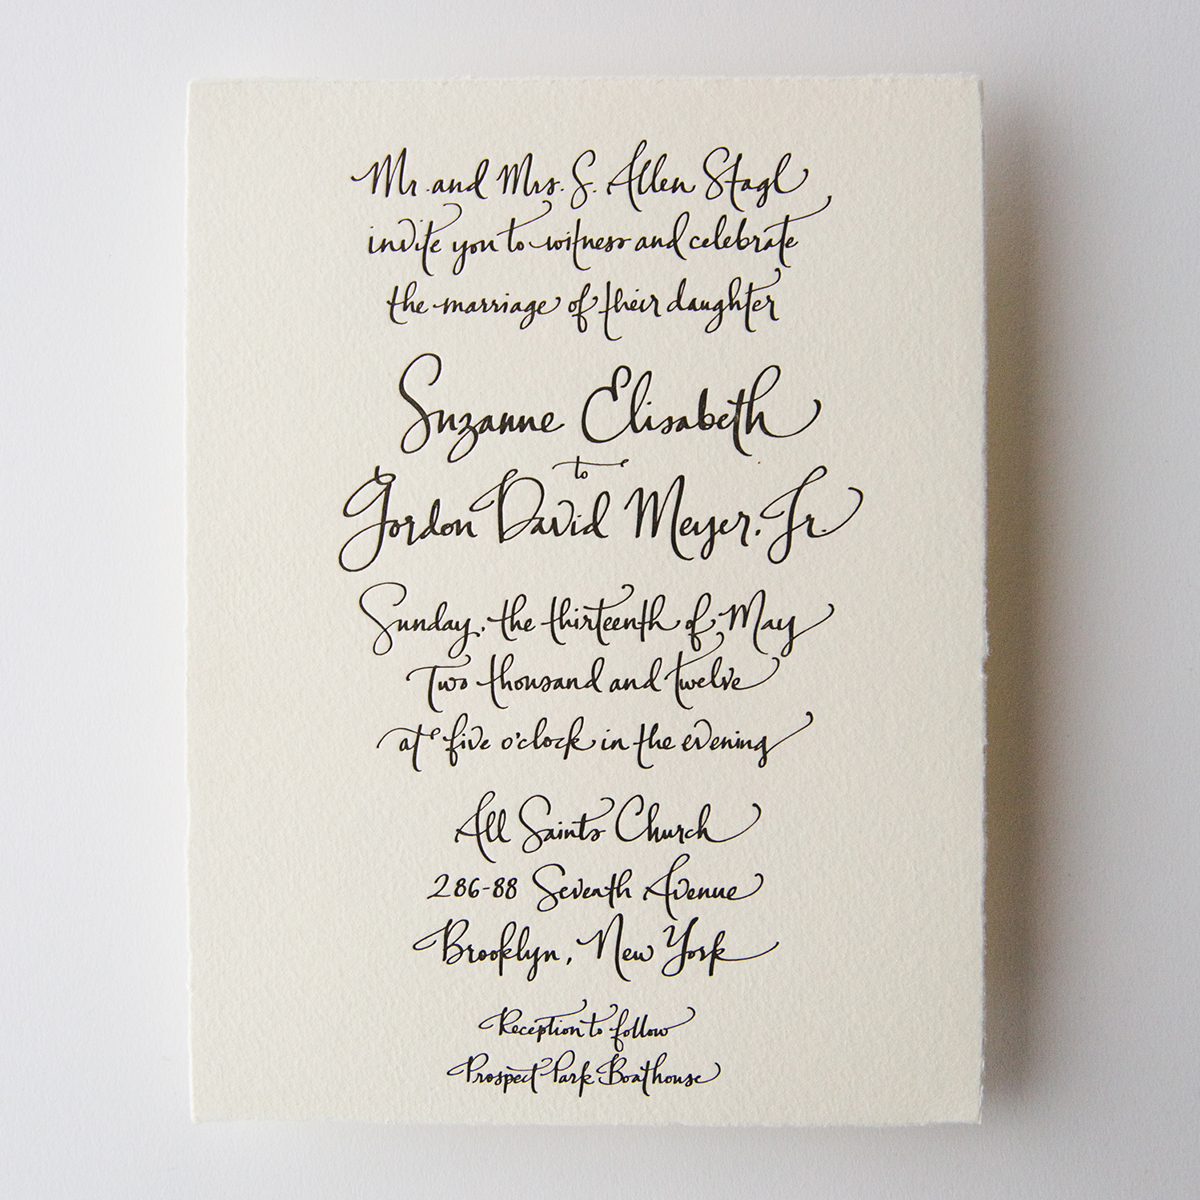 Mr. and Mrs. S. Allen Stagl
invite you to witness and celebrate
the marriage of their daughter
Suzanne Elisabeth
to
Gordon David Meyer, Jr.
Sunday, the thirteenth of May
Two thousand and twelve
at five o'clock in the evening
All Saints Church
286-88 Seventh Avenue
Brooklyn, New York
Reception to follow
Prospect Park Boathouse